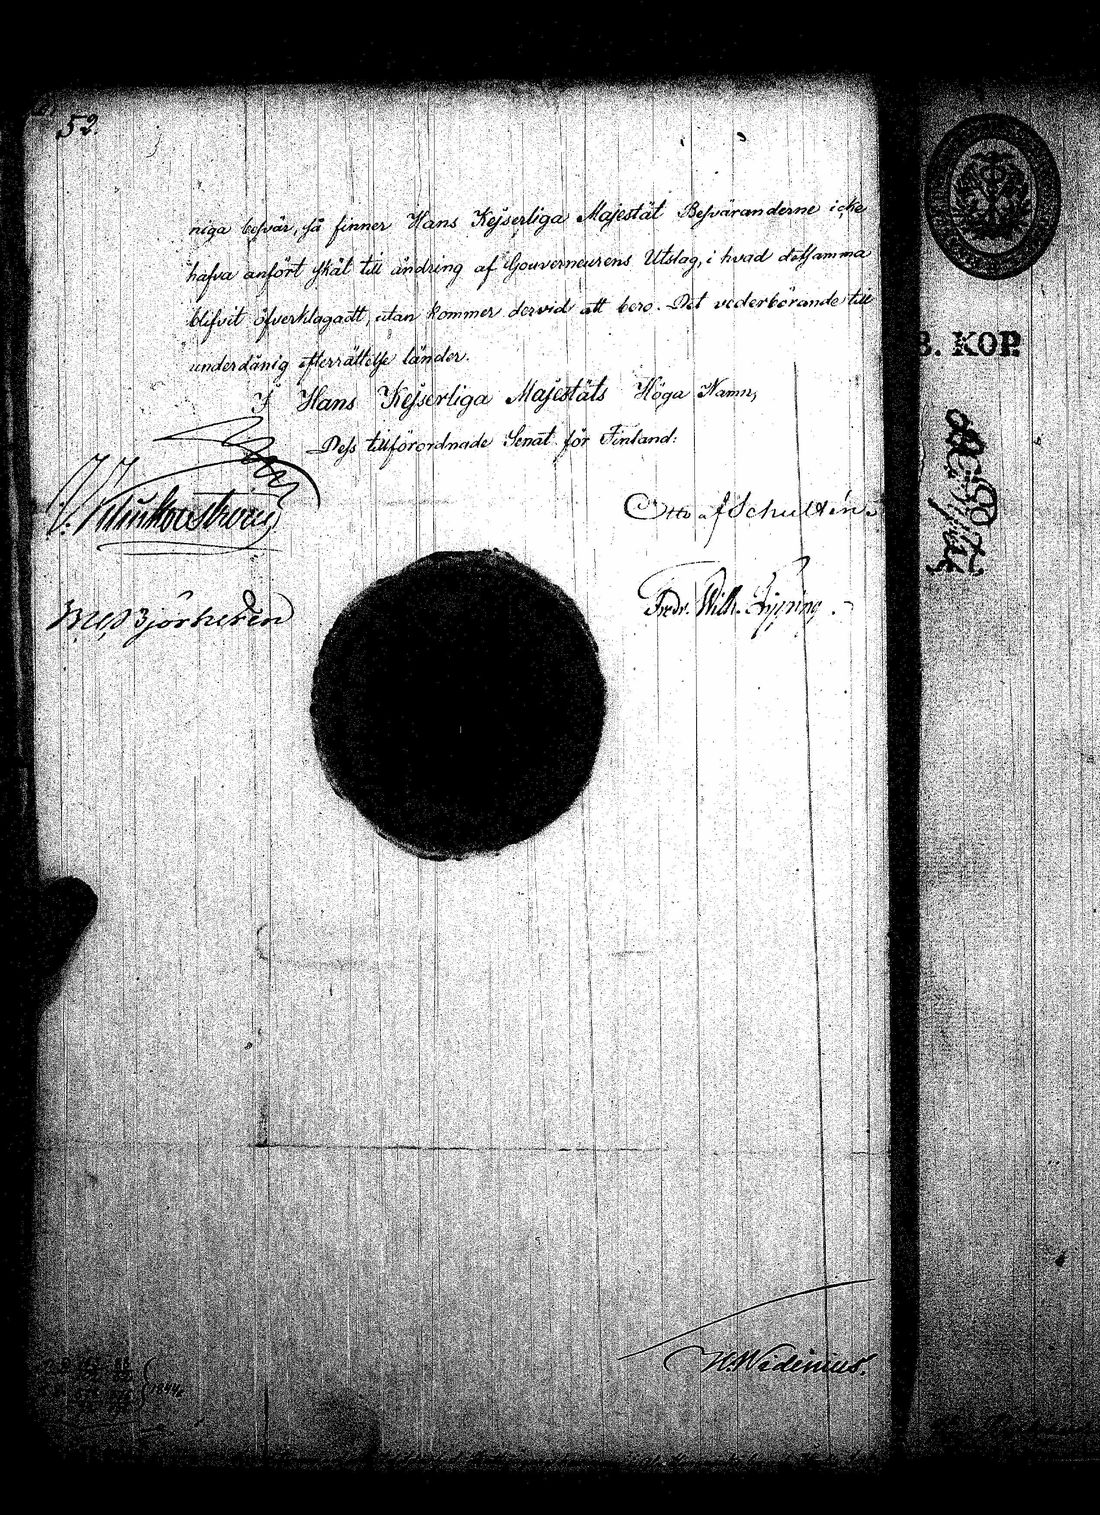 52.
niga besvär, så finner Hans Kejserliga Majestät Besväranderne icke
hafva anfört skäl till ändring af Gouverneurens Utslag, i hvad detsamma
blifvit öfverklagadt, utan kommer dervid att bero. Det vederbörande till
underdånig efterrättelse länder.
I Hans Kejserliga Majestäts Höga Namn,
Dess tillförordnade Senat för Finland:
Otto af Schultén.
Björkstén
Fredr. Wilh. Pipping.
H. Widenius.
1844
B. KOP.